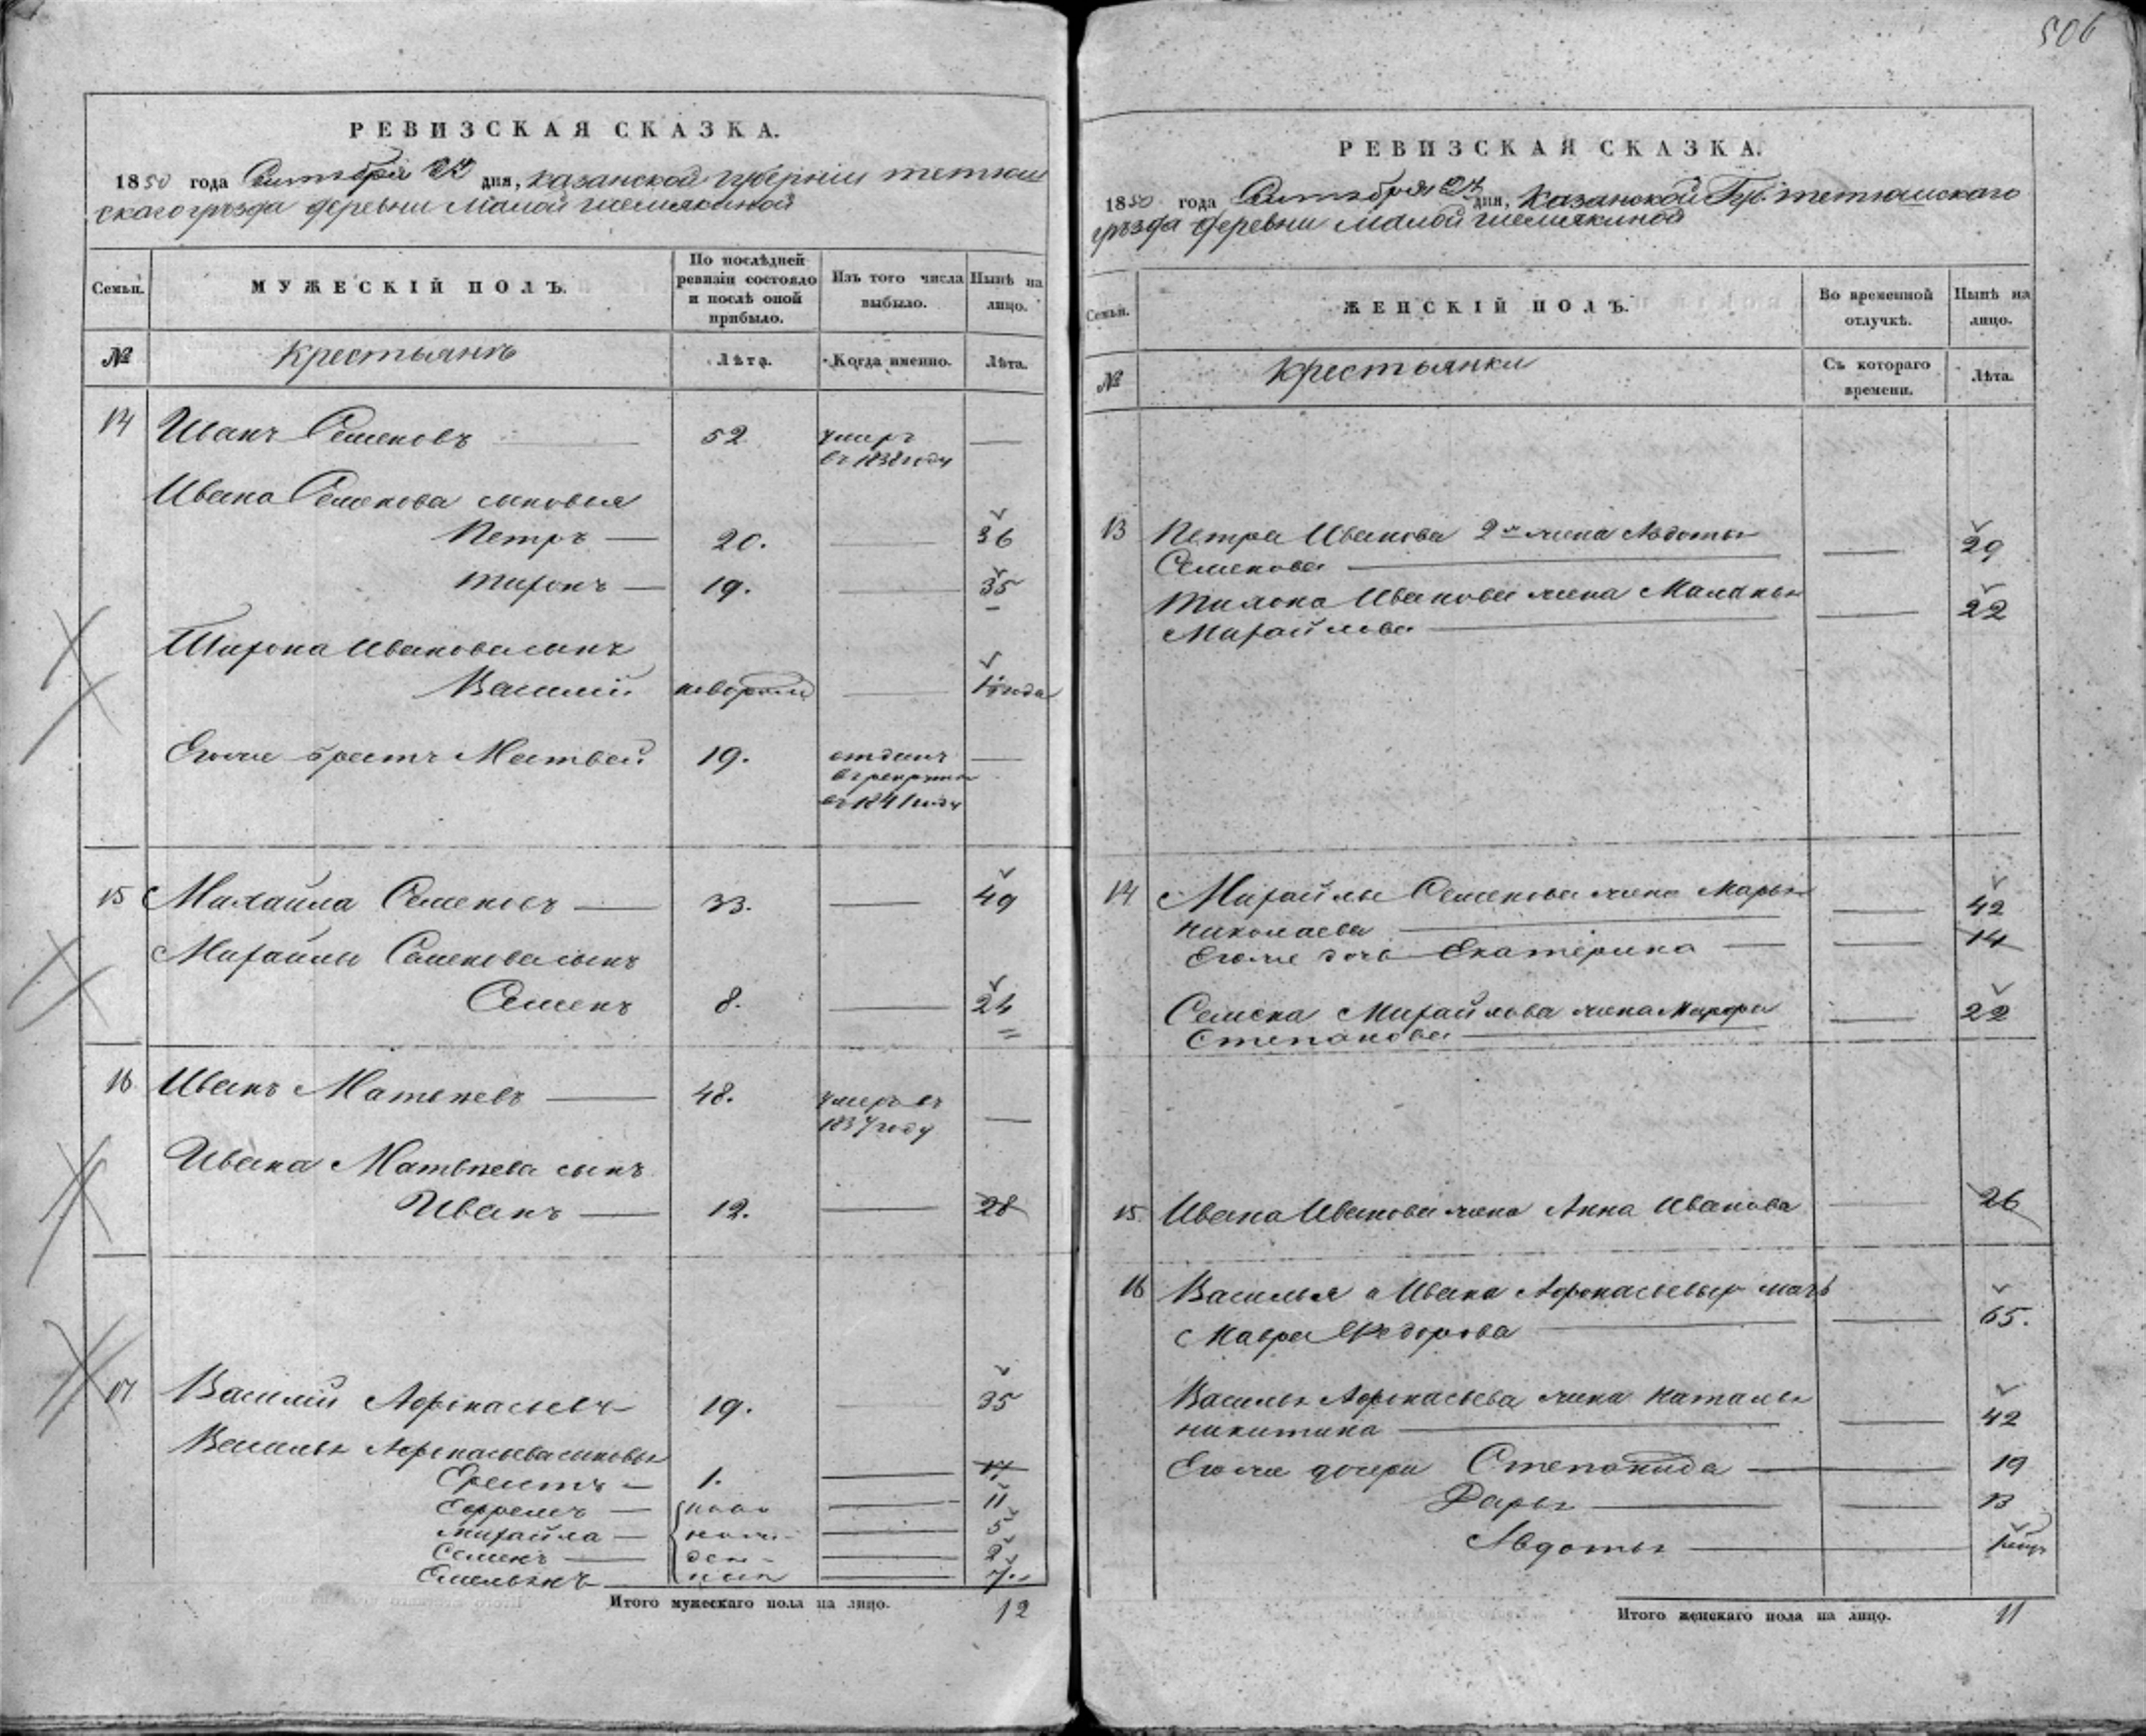 РЕВИЗСКАЯ СКАЗКА.
1850 года Сентября 24 дня, Казанской губернии тетюш
скаго уезда деревни Малой шемякиной
Семьи.
МУЖЕСКІЙ ПОЛЪ.
По послѣдней ревизіи состояло и послѣ оной прибыло.
Изъ того числа выбыло.
Нынѣ на лицо.
№
Крестьянъ
Лѣта.
Когда именно.
Лѣта.
14 Иванъ Семеновъ — 52 умеръ —
въ 1838 году
Ивана Семенова сыновья
Петръ — 20. — 36
тихонъ — 19. — 35
Тихона Иванова сынъ
Василій новорожд — 1 года
Егоже братъ Матвей 19. отданъ —
в рекруты
въ 1841 году
15 Михайла Семеновъ — 33. — 49
Михайлы Семенова сынъ
Семенъ 8. — 24
16 Иванъ Матвѣевъ — 48. умеръ въ —
1837 году
Ивана Матвѣева сынъ
Иванъ — 12. — 28
17 Василій Афонасьевъ 19. — 35
Василья Афонасьева сыновья
1. — 17
Ефремъ — ново — 11
Михайла — рож — 5
Семенъ — ден — 2
Емельянъ — ныя —
Итого мужескаго пола на лицо. 12
506
РЕВИЗСКАЯ СКАЗКА.
1850 года Сентября 24 дня, Казанской Губ. тетюшскаго
уезда деревни Малой шемякиной
Семьи.
ЖЕНСКІЙ ПОЛЪ.
Во временной отлучкѣ.
Нынѣ на лицо.
№
Крестьянки
Съ котораго времени.
Лѣта.
13 Петра Иванова 2я жена Авдотья
Семенова — — 29
Тихона Иванова жена Маланья
Михайлова — — 22
14 Михайлы Семенова жена Марья
Николаева — — 42
Егоже дочь Екатерина — — 14
Семена Михайлова жена Марфа — 22
Степанова —
15 Ивана Иванова жена Анна Иванова — 26
16 Василья и Ивана Афонасьевыхъ мать
Мавра Федорова — — 65.
Василья Афонасьева жена Наталья
Никитина — — 42
Егоже дочери Степанида — — 19
Дарья — — 13
Авдотья —
Итого женскаго пола на лицо. 11